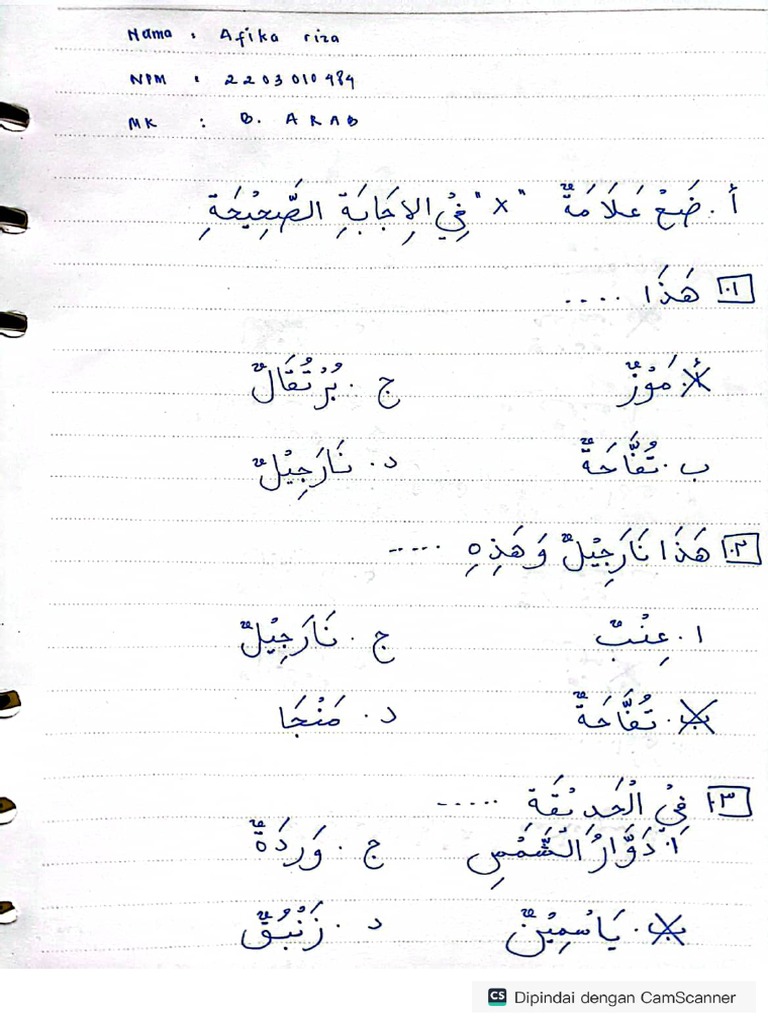 Nama : Afika riza
NPM : 2203010484
MK : B. ARAB
أ. ضَعْ عَلَامَةٌ "x" فِيْ الإِجَابَةِ الصَّحِيْحَةِ
١. هَذَا ....
أ. مَوْزٌ ج. بُرْتُقَالٌ
ب. تُفَّاحَةٌ د. نَارَجِيْلٌ
٢. هَذَا نَارَجِيْلٌ وَهَذِهِ .....
ا. عِنْبٌ ج. نَارَجِيْلٌ
ب. تُفَّاحَةٌ د. مَنْجَا
٣. فِيْ الْحَدِيْقَة .....
ا. دَوَّارُ الشَّمْسِ ج. وَردَةٌ
ب. يَاسْمِيْنٌ د. زَنْبُقٌ
CS Dipindai dengan CamScanner